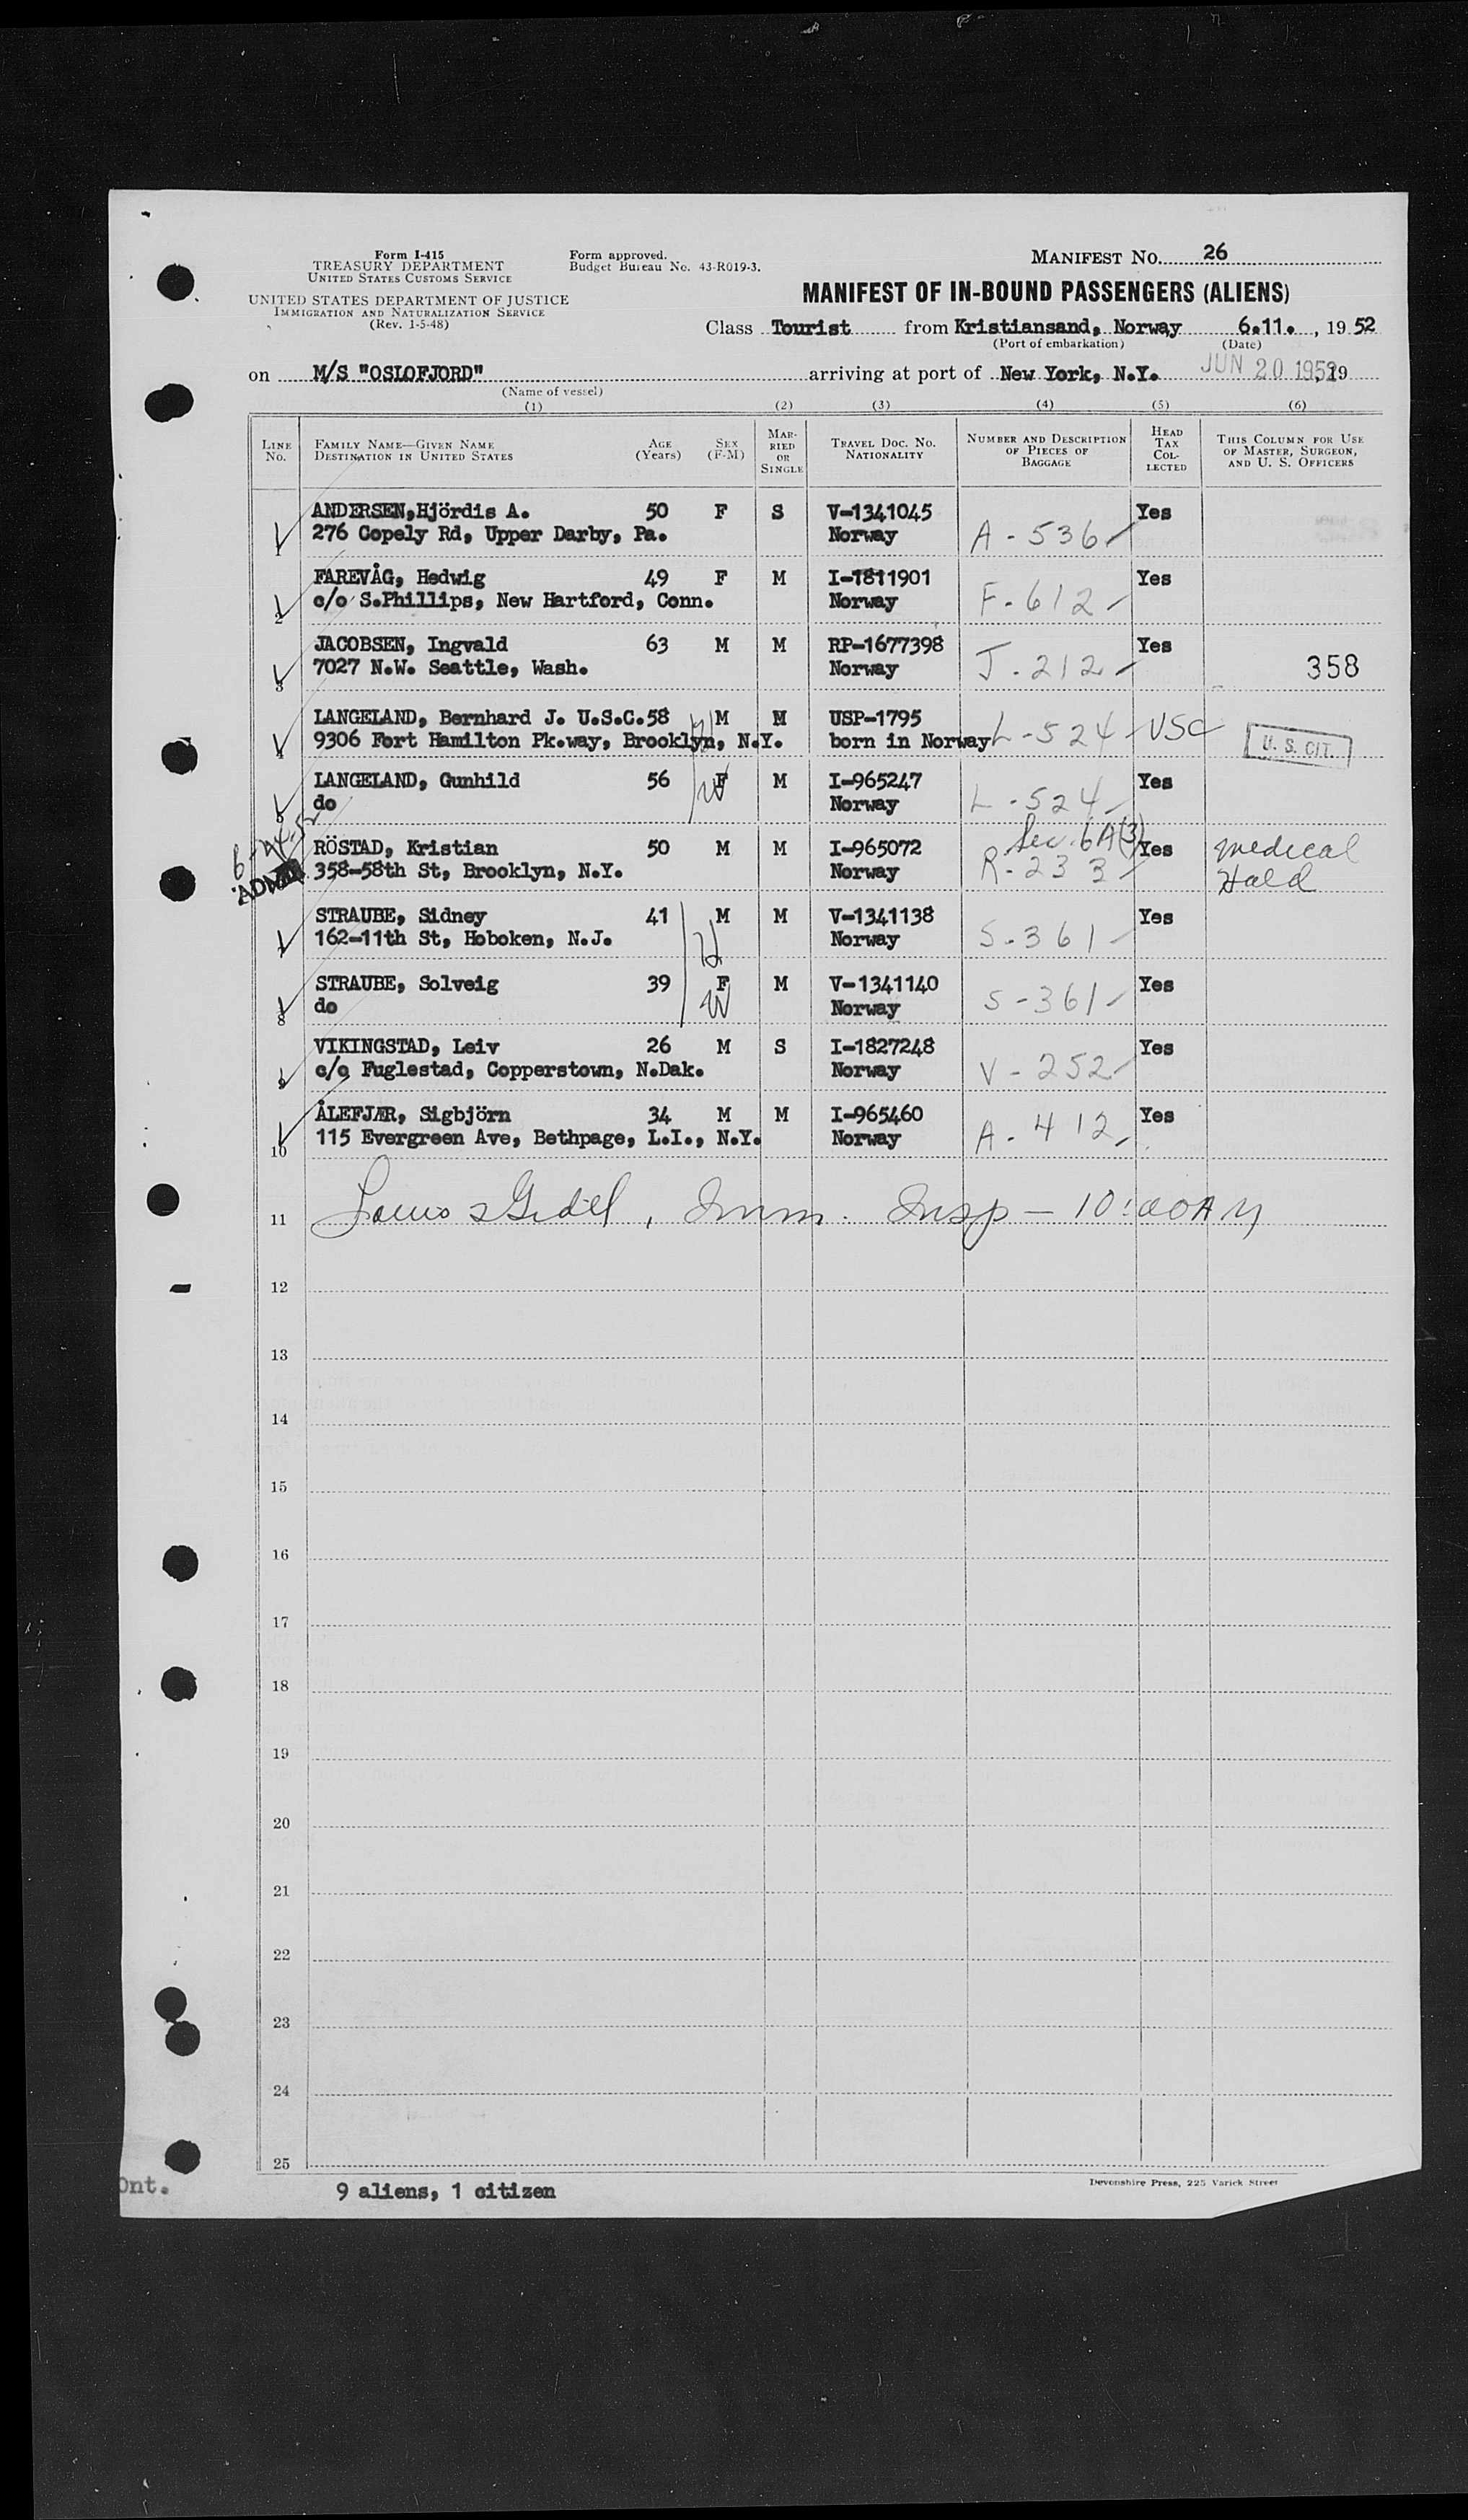 Form I-415
TREASURY DEPARTMENT
UNITED STATES CUSTOMS SERVICE
UNITED STATES DEPARTMENT OF JUSTICE
IMMIGRATION AND NATURALIZATION SERVICE
(Rev. 1-5-48)
Form approved.
Budget Bureau No. 43-R019-3.
MANIFEST No. 26
MANIFEST OF IN-BOUND PASSENGERS (ALIENS)
Class Tourist from Kristiansand, Norway 6.11., 1952
(Port of embarkation) (Date)
on M/S "OSLOFJORD" arriving at port of New York, N.Y. JUN 20 1952, 19
(Name of vessel)
(1) (2) (3) (4) (5) (6)
LINE No. FAMILY NAME—GIVEN NAME DESTINATION IN UNITED STATES AGE (Years) SEX (F-M) MARRIED OR SINGLE TRAVEL DOC. NO. NATIONALITY NUMBER AND DESCRIPTION OF PIECES OF BAGGAGE HEAD TAX COLLECTED THIS COLUMN FOR USE OF MASTER, SURGEON, AND U. S. OFFICERS
ANDERSEN,Hjördis A. 50 F S V-1341045 Yes
1 276 Copely Rd, Upper Darby, Pa. Norway A-536
FAREVÅG, Hedwig 49 F M I-1811901 Yes
2 c/o S.Phillips, New Hartford, Conn. Norway F-612
JACOBSEN, Ingvald 63 M M RP-1677398 Yes
3 7027 N.W. Seattle, Wash. Norway J-212 358
LANGELAND, Bernhard J. U.S.C. 58 M M USP-1795
4 9306 Fort Hamilton Pk.way, Brooklyn, N.Y. born in Norway L-524 USC U. S. CIT.
LANGELAND, Gunhild 56 F M I-965247 Yes
do W Norway L-524
6-24-52 Sec. 6A(3)
RÖSTAD, Kristian 50 M M I-965072 Yes medical
358-58th St, Brooklyn, N.Y. Norway R-233 Hold
STRAUBE, Sidney 41 M M V-1341138 Yes
162-11th St, Hoboken, N.J. H Norway S-361
STRAUBE, Solveig 39 F M V-1341140 Yes
8 do W Norway S-361
VIKINGSTAD, Leiv 26 M S I-1827248 Yes
9 c/o Fuglestad, Copperstown, N.Dak. Norway V-252
ÅLEFJÆR, Sigbjörn 34 M M I-965460 Yes
10 115 Evergreen Ave, Bethpage, L.I., N.Y. Norway A-412
11 Imm. Insp — 10:00AM
12
13
14
15
16
17
18
19
20
21
22
23
24
25
Ont.
9 aliens, 1 citizen
Devonshire Press, 225 Varick Street